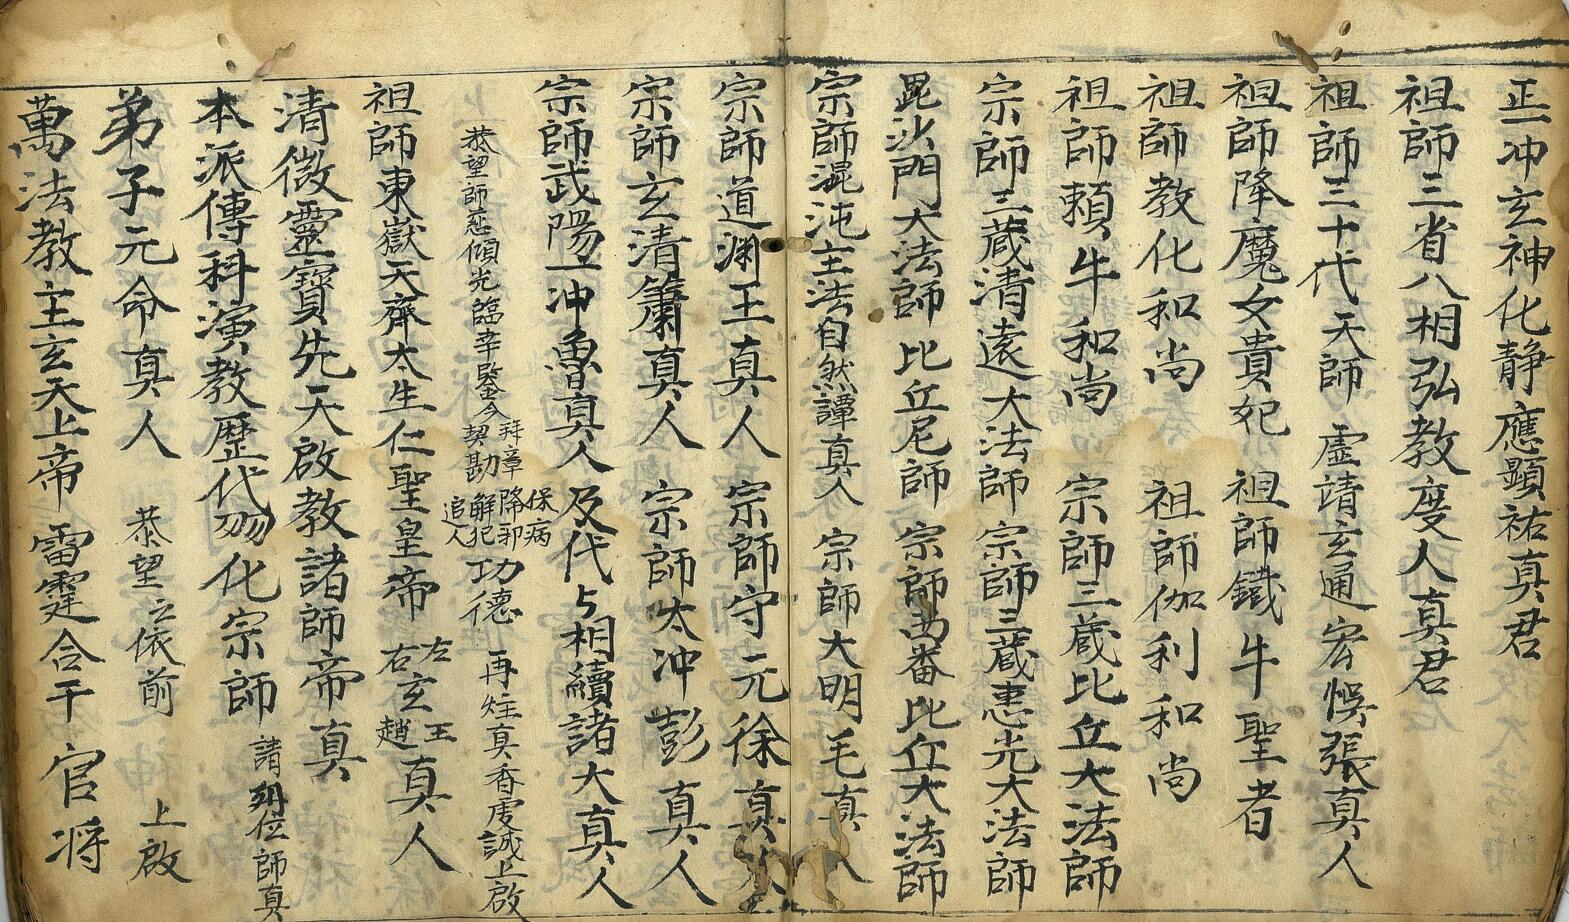 正一冲玄神化静應顯祐真君
祖師三省八相弘教度人真君
祖師三十代天師　虚靖玄通宏悞張真人
祖師降魔女貴妃　祖師鐵牛聖者
祖師教化和尚　祖師伽利和尚
祖師賴牛和尚　宗師三蔵比丘大法師
宗師三蔵清遠大法師　宗師三蔵惠光大法師
毘沙門大法師比丘尼師　宗師西番比丘大法師
宗師混沌主法自然譚真人　宗師大明毛真人
宗師道渊王真人　宗師守元徐真人
宗師玄清蕭真人　宗師太冲彭真人
宗師武陽一冲魯真人　及代上相續諸大真人
恭望師慈傾光臨幸鑒今拜章契勘保病降邪解犯追人功德　再炷真香虔誠上啟
祖師東嶽天齊太生仁聖皇帝　左右玄王趙真人
清微靈寳先天啟教諸師帝真
本派傳科演教歷代刅化宗師　請列位師真
弟子元命真人　恭望立依前　上啟
萬法教主玄天上帝　雷霆合干　官将